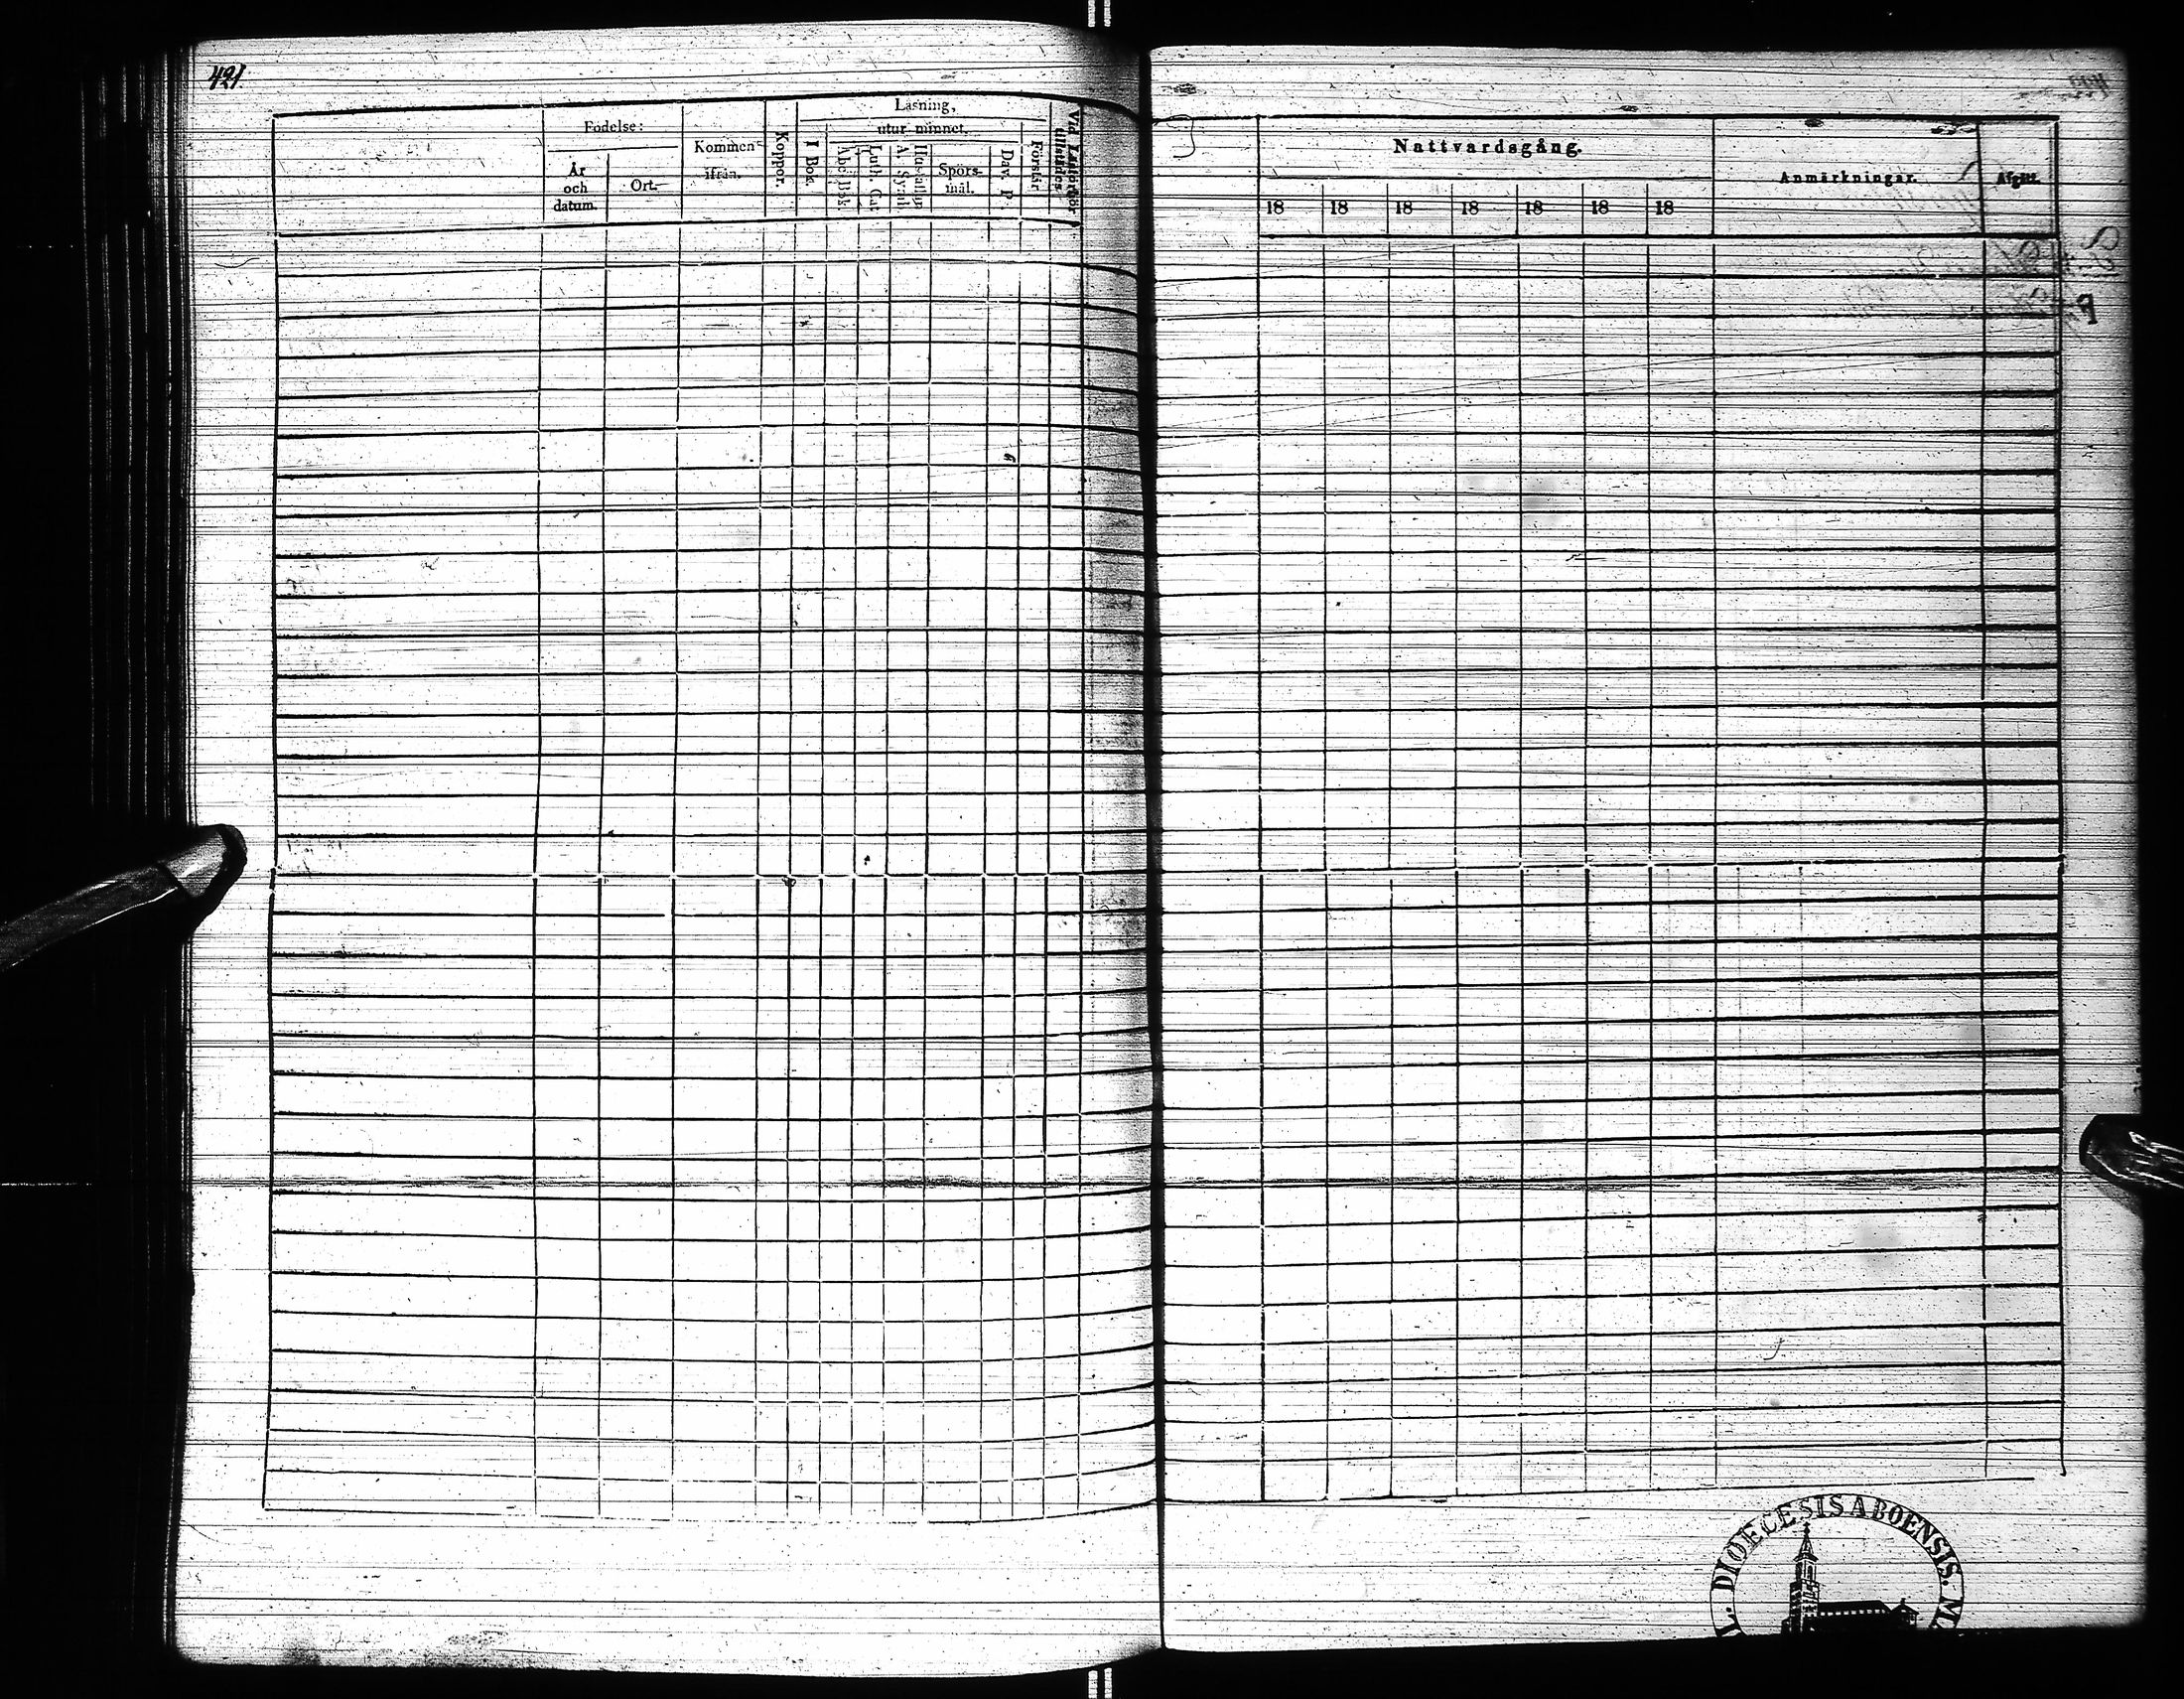 421.
Födelse:
År
och
datum.
Ort.
Kommen
ifrån.
Koppor.
Läsning,
I Bok.
utur minnet.
Abc Bok.
Luth. Cat.
A. Symb.
Spörs-
mål.
Dav. P.
Förstår.
Vid Läsförhör
tillstädes
Nattvardsgång.
18 18 18 18 18 18 18
Anmärkningar.
Afgått.
DIOECESIS ABOENSIS. M